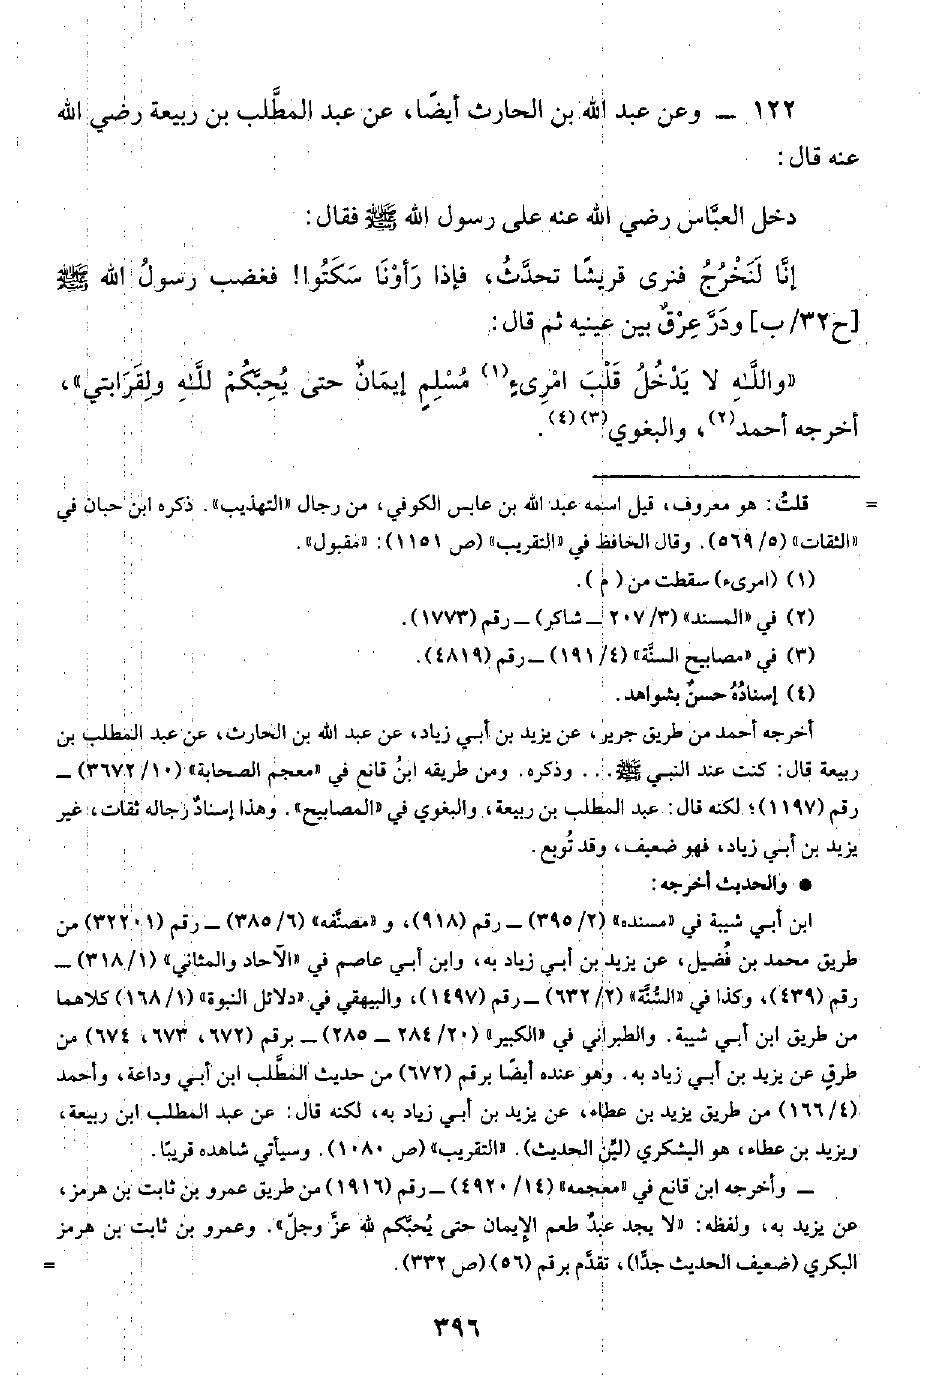 ١٢٢ ــ وعن عبد الله بن الحارث أيضًا، عن عبد المطَّلب بن ربيعة رضي الله
عنه قال:
دخل العبَّاس رضي الله عنه على رسول الله ﷺ فقال:
إنَّا لَنَخْرُجُ فنرى قريشًا تحدَّثُ، فإذا رَأَوْنَا سَكَتُوا! فغضب رسولُ الله ﷺ
[ح٣٢/ ب] ودَرَّ عِرْقٌ بين عينيه ثم قال:
«واللَّـهِ لا يَدْخُلُ قَلْبَ امْرِىءٍ(١) مُسْلِمٍ إيمَانٌ حتى يُحِبَّكُمْ للَّـهِ ولِقَرَابتي»،
أخرجه أحمد(٢)، والبغوي(٣)(٤).
= قلتُ: هو معروف، قيل اسمه عبد الله بن عابس الكوفي، من رجال «التهذيب». ذكره ابن حبان في
«الثقات» (٥/ ٥٦٩). وقال الحافظ في «التقريب» (ص ١١٥١): «مقبول».
(١) (امرىء) سقطت من ( م ).
(٢) في «المسند» (٣/ ٢٠٧ ــ شاكر) ــ رقم (١٧٧٣).
(٣) في «مصابيح السنَّة» (٤/ ١٩١) ــ رقم (٤٨١٩).
(٤) إسنادُهُ حسنٌ بشواهد.
أخرجه أحمد من طريق جرير، عن يزيد بن أبي زياد، عن عبد الله بن الحارث، عن عبد المطلب بن
ربيعة قال: كنت عند النبي ﷺ... وذكره. ومن طريقه ابنُ قانع في «معجم الصحابة» (١٠/ ٣٦٧٢) ــ
رقم (١١٩٧)؛ لكنه قال: عبد المطلب بن ربيعة، والبغوي في «المصابيح». وهذا إسنادٌ رجاله ثقات، غير
يزيد بن أبي زياد، فهو ضعيف، وقد تُوبع.
● والحديث أخرجه:
ابن أبي شيبة في «مسنده» (٢/ ٣٩٥) ــ رقم (٩١٨)، و «مصنَّفه» (٦/ ٣٨٥) ــ رقم (٣٢٢٠١) من
طريق محمد بن فُضيل، عن يزيد بن أبي زياد به، وابن أبي عاصم في «الآحاد والمثاني» (١/ ٣١٨) ــ
رقم (٤٣٩)، وكذا في «السُّنَّة» (٢/ ٦٣٢) ــ رقم (١٤٩٧)، والبيهقي في «دلائل النبوة» (١/ ١٦٨) كلاهما
من طريق ابن أبي شيبة. والطبراني في «الكبير» (٢٠/ ٢٨٤ ــ ٢٨٥) ــ برقم (٦٧٢، ٦٧٣، ٦٧٤) من
طرقٍ عن يزيد بن أبي زياد به. وهو عنده أيضًا برقم (٦٧٢) من حديث المطَّلب ابن أبي وداعة، وأحمد
(٤/ ١٦٦) من طريق يزيد بن عطاء، عن يزيد بن أبي زياد به، لكنه قال: عن عبد المطلب ابن ربيعة،
ويزيد بن عطاء، هو اليشكري (ليِّن الحديث). «التقريب» (ص ١٠٨٠). وسيأتي شاهده قريبًا.
ــ وأخرجه ابن قانع في «معجمه» (١٤/ ٤٩٢٠) ــ رقم (١٩١٦) من طريق عمرو بن ثابت بن هرمز،
عن يزيد به، ولفظه: «لا يجد عبدٌ طعم الإيمان حتى يُحبَّكم لله عزَّ وجلّ». وعمرو بن ثابت بن هرمز
البكري (ضعيف الحديث جدًّا)، تقدَّم برقم (٥٦) (ص ٣٣٢). =
٣٩٦